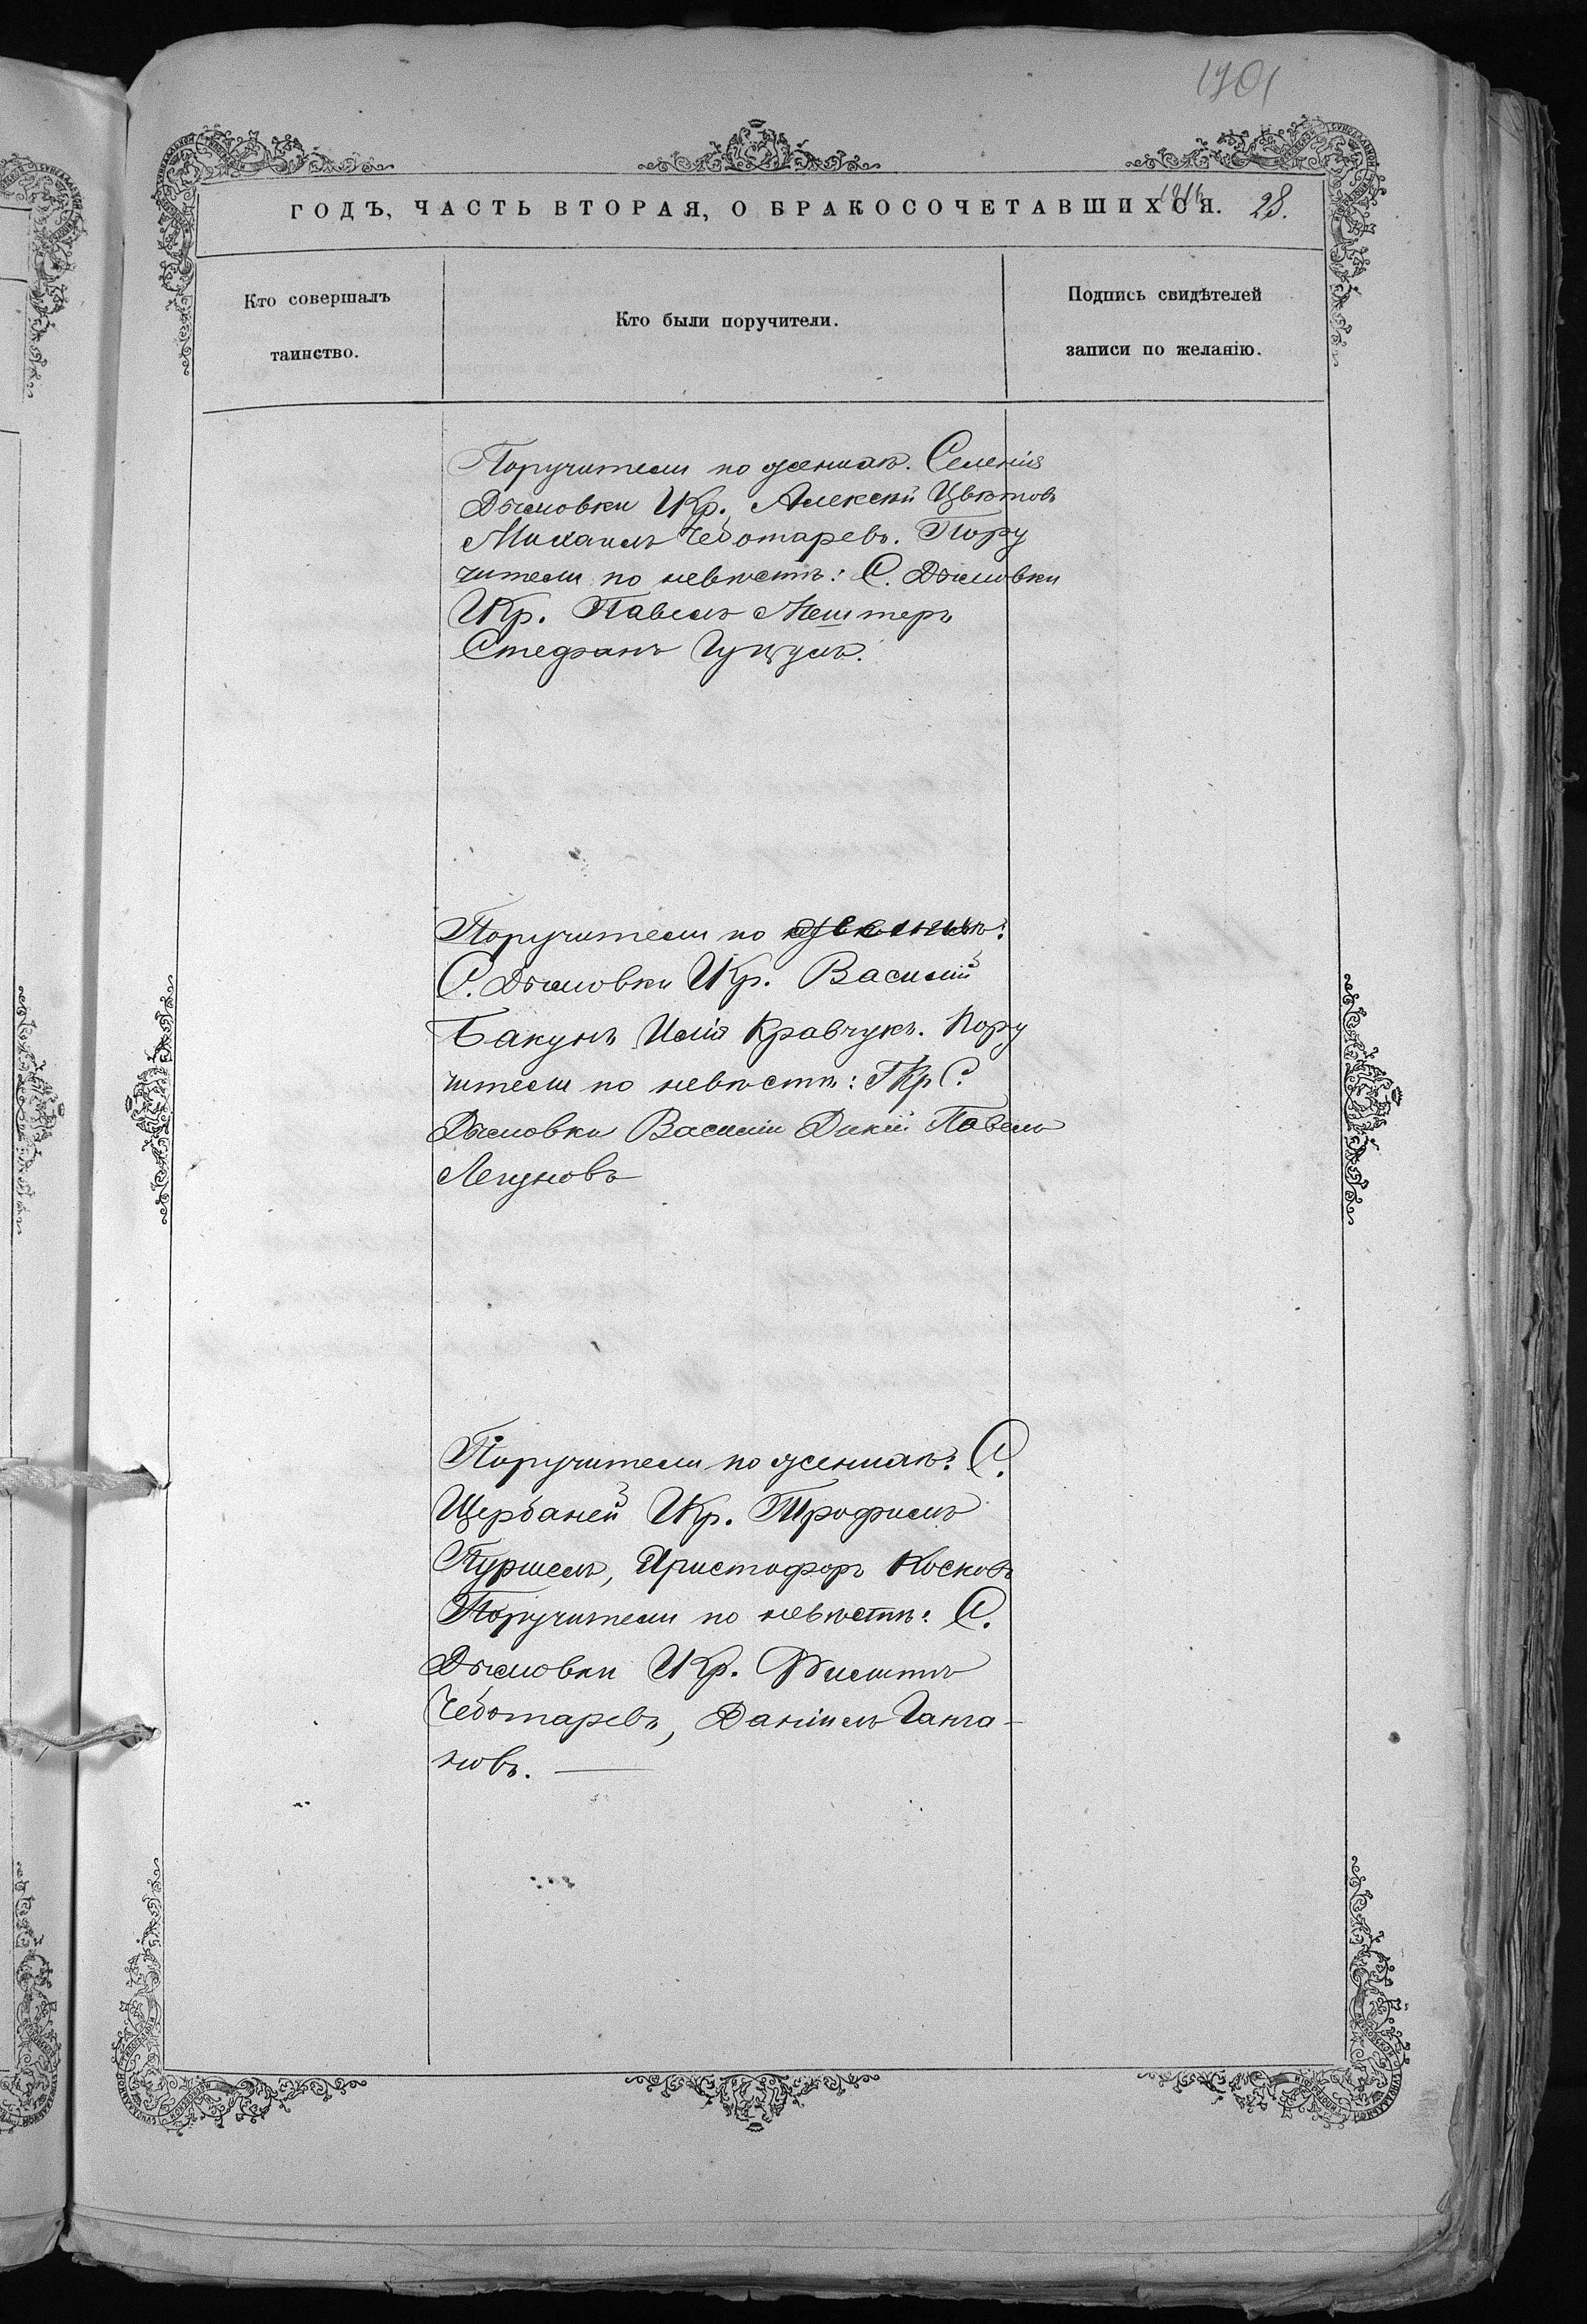 1901
ГОДЪ, ЧАСТЬ ВТОРАЯ, О БРАКОСОЧЕТАВШИХСЯ. 28.
Кто совершалъ
таинство.
Кто были поручители.
Подпись свидѣтелей
записи по желанію.
Поручители по женихѣ. Селенія
Дымовки Кр. Алексѣй Цвѣтовъ
Михаилъ Чеботаревъ. Пору
чители по невѣстѣ: С. Дымовки
Кр. Павелъ Мештеръ
Стефанъ Гуцулъ.
Поручители по
С. Дымовки Кр. Василій
Бакунъ Илія Кравчукъ. Пору
чители по невѣстѣ: Кр С.
Дымовки Василій Дикій Павелъ
Легуновъ
Поручители по женихѣ: С.
Щербаней Кр. Трофимъ
Туршелъ, Христофоръ Косковъ
Поручители по невѣстѣ: С.
Дымовки Кр. Филиппъ
Чеботаревъ, Даніилъ Ганга-
новъ.